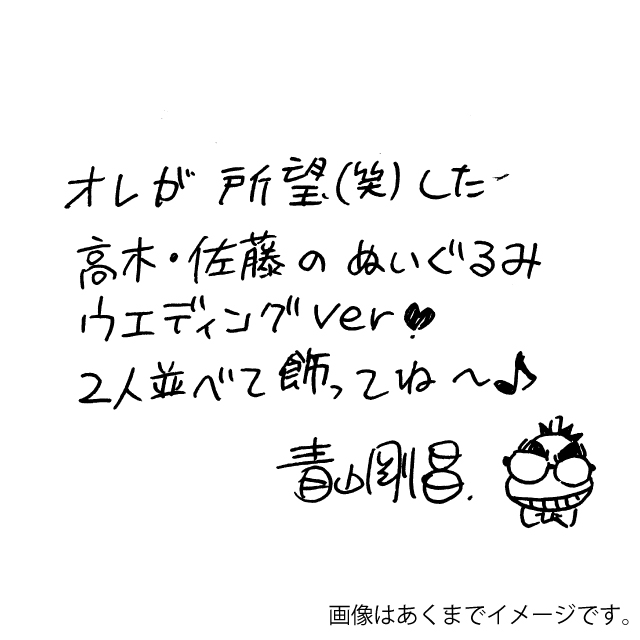 オレが所望(笑)した
高木・佐藤のぬいぐるみ
ウエディングver♥
2人並べて飾ってね〜♪
青山剛昌.
画像はあくまでイメージです。